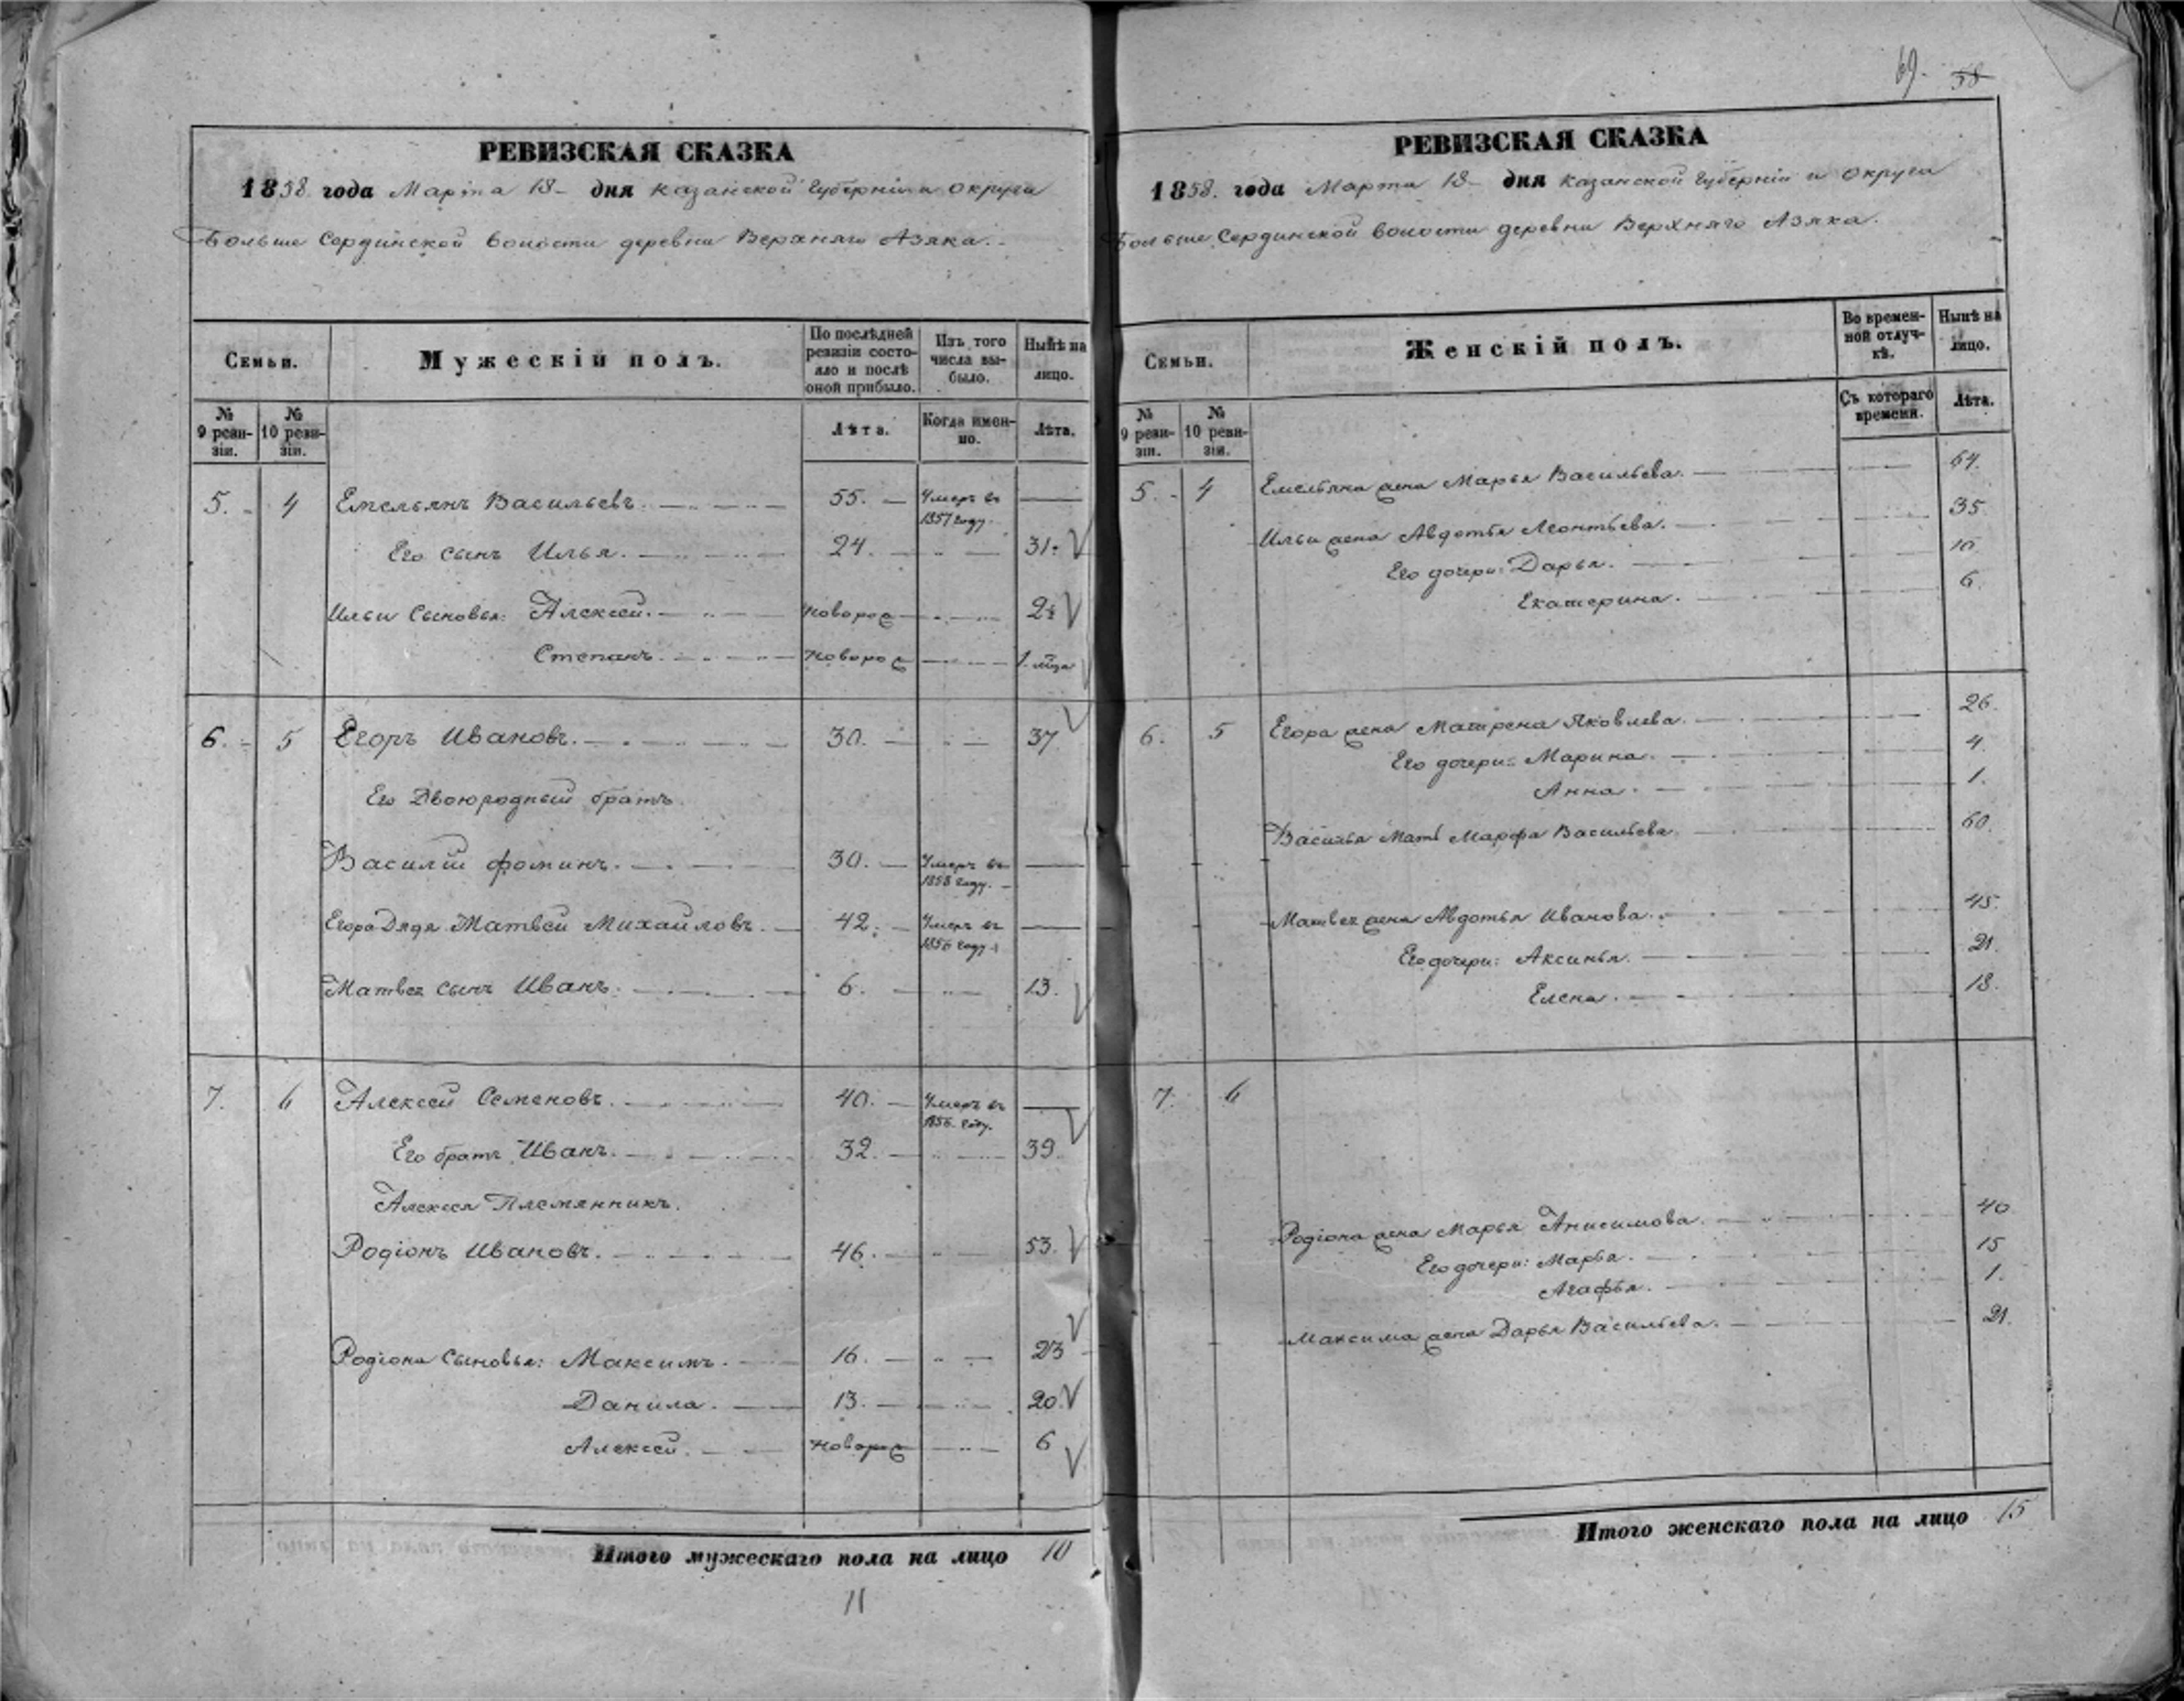 РЕВИЗСКАЯ СКАЗКА
1858. года Марта 18 дня Казанской Губерніи и округа
Больше Сердинской волости деревни Верхняго Азяка.
Семьи. Мужескій полъ. По послѣдней ревизіи состояло и послѣ оной прибыло. Изъ того числа выбыло. Нынѣ на лицо.
№ 9 ревизіи. № 10 ревизіи. Лѣта. Когда именно. Лѣта.
5. 4 Емельянъ Васильевъ. 55. Умеръ въ 1857 году.
Его сынъ Илья. 24. 31.
Ильи Сыновья: Алексей. новорож
Степанъ. новорож 1. мѣца
6. 5 Егоръ Ивановъ. 30. 37
Его Двоюродный братъ
Василій Фоминъ. 30. Умеръ въ 1858 году.
Егора Дядя Матвей Михайловъ. 42. Умеръ въ 1856 году
Матвея сынъ Иванъ. 6. 13.
7. 6 Алексей Семеновъ. 40. Умеръ въ 1856. году.
Его братъ Иванъ. 32. 39.
Алексея Племянникъ.
Родіонъ Ивановъ. 46. 53.
Родіона Сыновья: Максимъ. 16. 23
Данила. 13. 20.
Алексей. новорож 6
Итого мужескаго пола на лицо 10
11
69. 58
РЕВИЗСКАЯ СКАЗКА
1858. года Марта 18 дня Казанской Губерніи и округа
Больше Сердинской волости деревни Верхняго Азяка.
Семьи. Женскій полъ. Во временной отлучкѣ. Нынѣ на лицо.
№ 9 ревизіи. № 10 ревизіи. Съ котораго времени. Лѣта.
5. 4 Емельяна жена Марья Васильева. 64.
Ильи жена Авдотья Леонтьева. 35
Его дочери: Дарья. 10
Екатерина. 6.
6. 5 Егора жена Матрена Яковлева. 26.
Его дочери: Марина. 4.
Анна. 1.
Василья Мать Марфа Васильева. 60.
Матвея жена Авдотья Иванова. 45.
Его дочери: Аксинья. 21.
Елена. 18.
7. 6
Родіона жена Марья Анисимова. 40
Его дочери: Марья. 15
Агафья. 1.
Максима жена Дарья Васильева. 21.
Итого женскаго пола на лицо 15